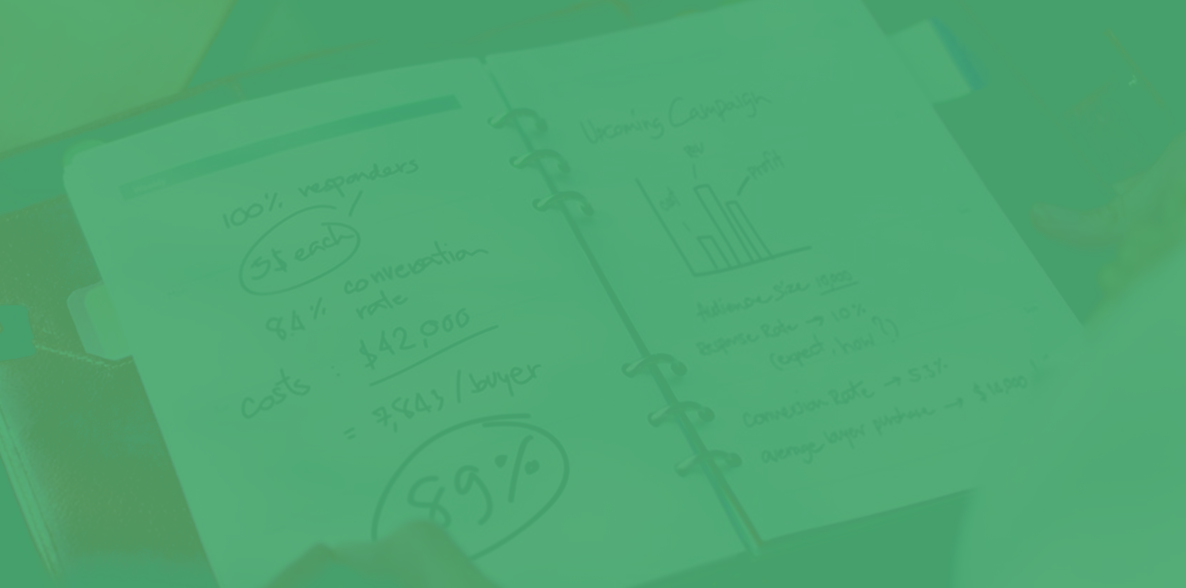 100% responders
5$ each
84% conversation
rate
costs : $42,000
= 7,843 / buyer
89%
Upcoming Campaign
profit
Audience size 10,000
response Rate → 10%
(expect, how?)
Conversion Rate → 53%
average buyer purchase → $10,000